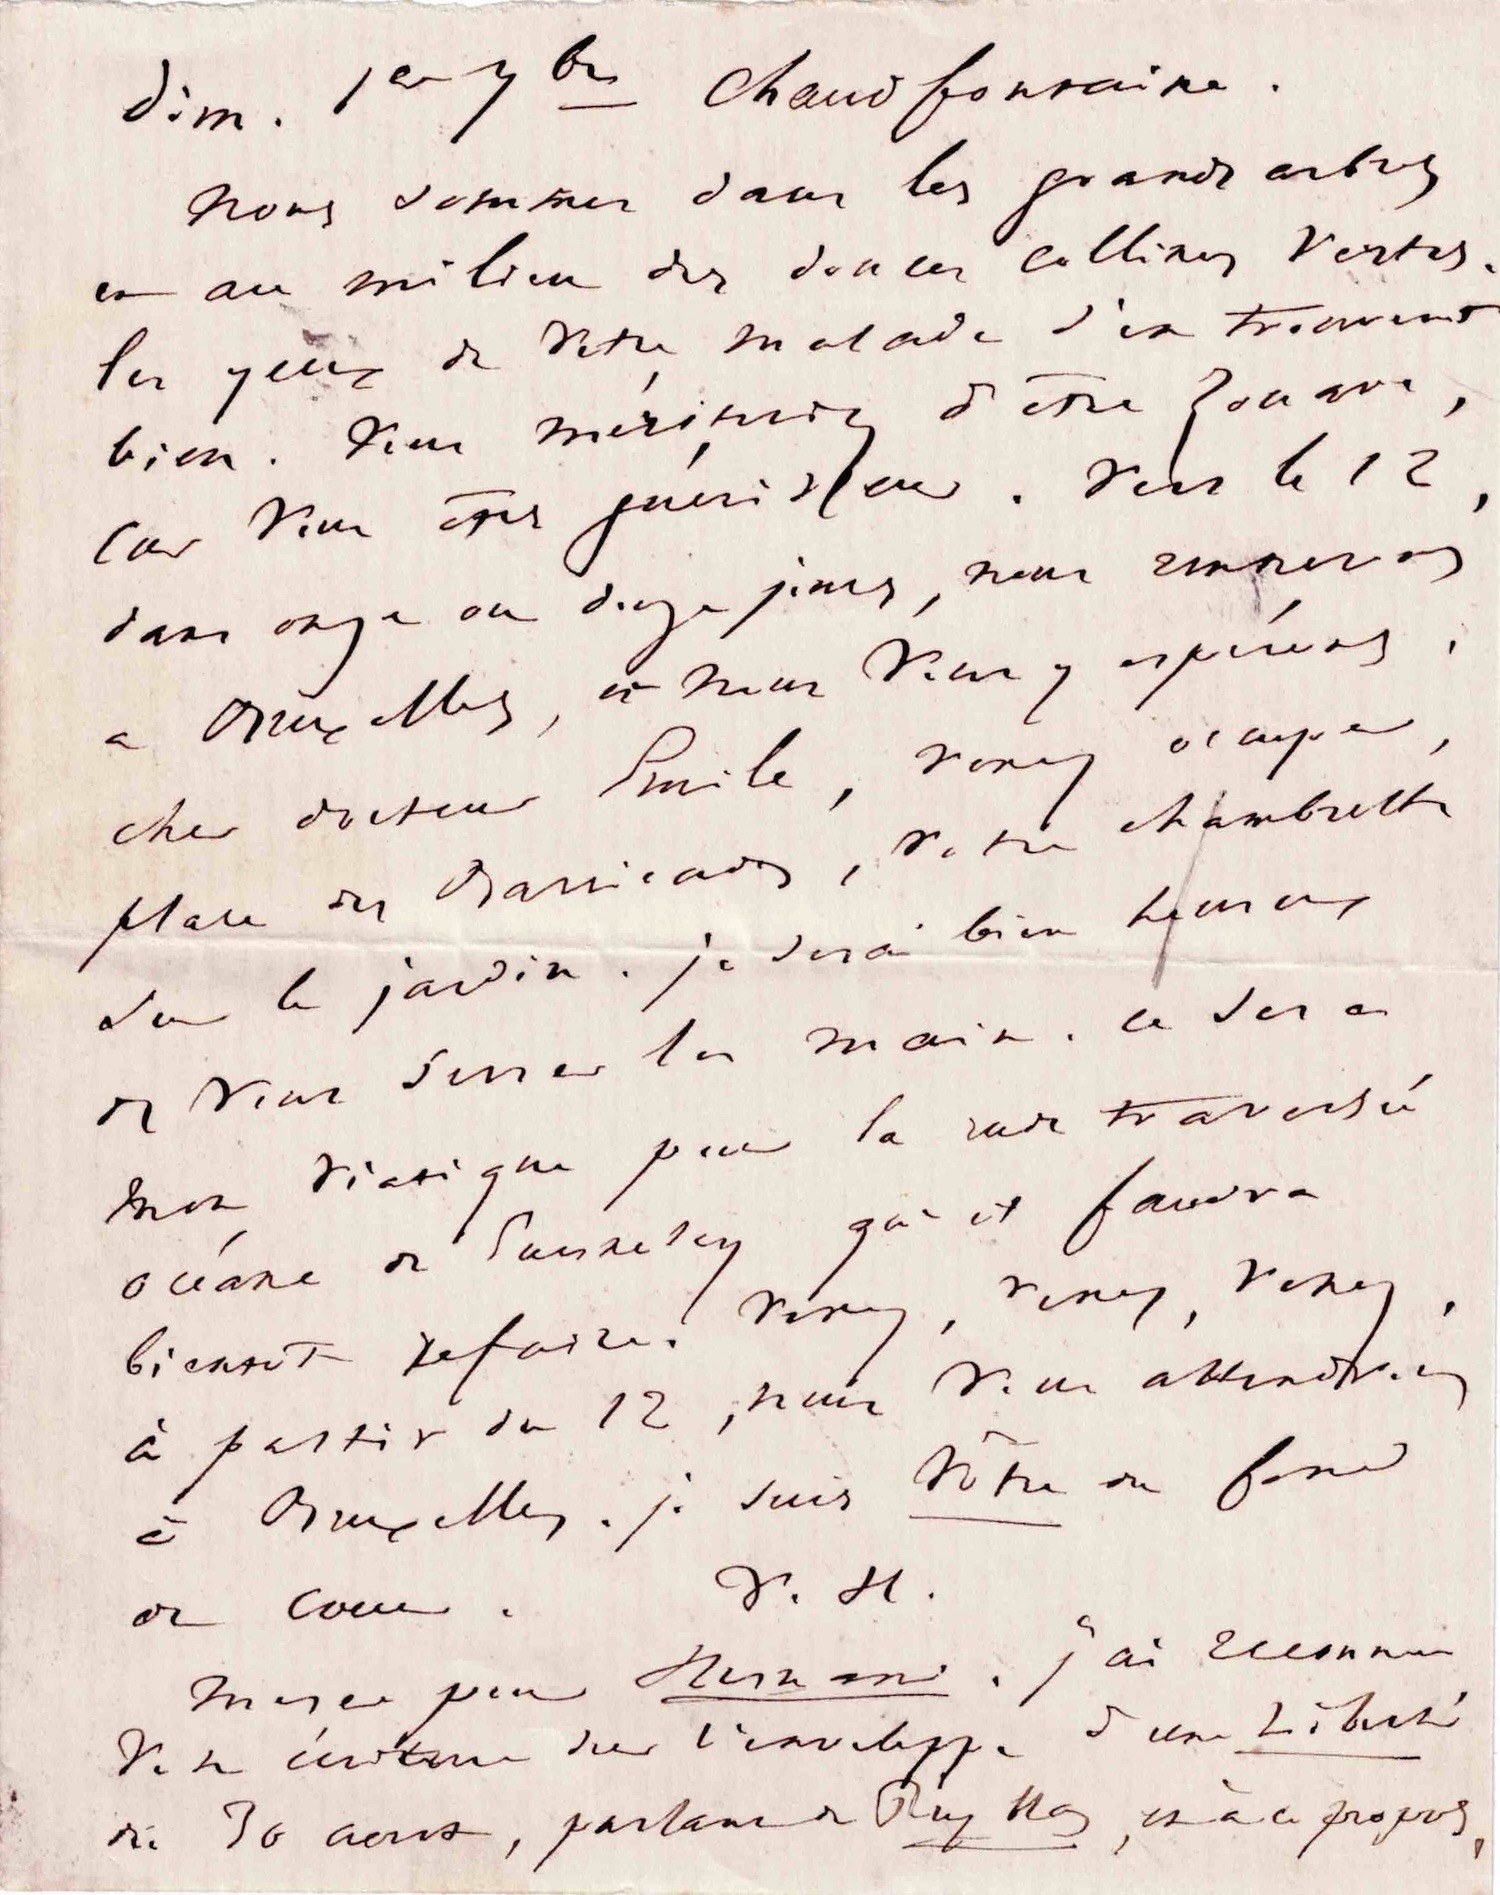 Dim. 1er 7bre Chaudfontaine.
Nous sommes dans les grands arbres
et au milieu des douces collines vertes.
les yeux de votre malade s'en trouvent
bien. Vous mériteriez d'être zouave,
car vous êtes guérisseur. Vers le 12,
dans onze ou douze jours, nous rentrerons
à Bruxelles, et nous vous y espérons.
cher docteur Émile, venez occuper,
place des Barricades, votre chambrette
sur le jardin. je serai bien heureux
de vous serrer la main. ce sera
mon viatique pour la rude traversée
océane de Guernesey qu'il faudra
bientôt refaire. Venez, venez, venez.
à partir du 12, nous vous attendrons
à Bruxelles. je suis vôtre du fond
du coeur. V. H.
Merci pour Hernani. j'ai reconnu
votre écriture sur l'enveloppe d'une Liberté
du 30 août, parlant de Ruy Blas, et à ce propos,